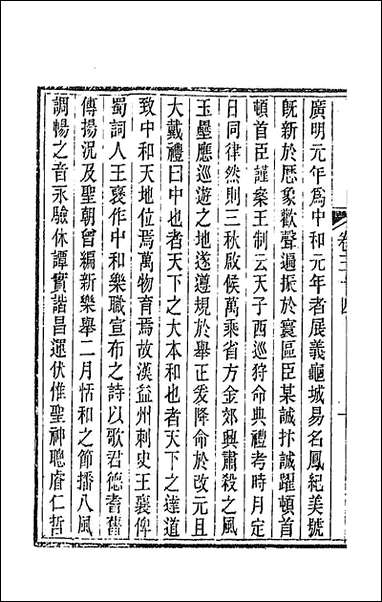 卷三十四
廣明元年爲中和元年者展義龜城易名鳳紀美號
既新於厯象歡聲遐振於寰區臣某誠抃誠躍頓首
頓首臣謹案王制云天子西巡狩命典禮考時月定
日同律然則三秋啟候萬乘省方金郊興肅殺之風
玉壘應巡遊之地遂遵規於舉正爰降命於改元且
大戴禮曰中也者天下之大本和也者天下之達道
致中和天地位焉萬物育焉故漢益州刺史王襄俾
蜀詞人王襃作中和樂職宣布之詩以歌君德耆舊
傳揚況及聖朝曾編新樂舉二月恬和之節播八風
調暢之音永驗休譚實諧昌運伏惟聖神聰睿仁哲